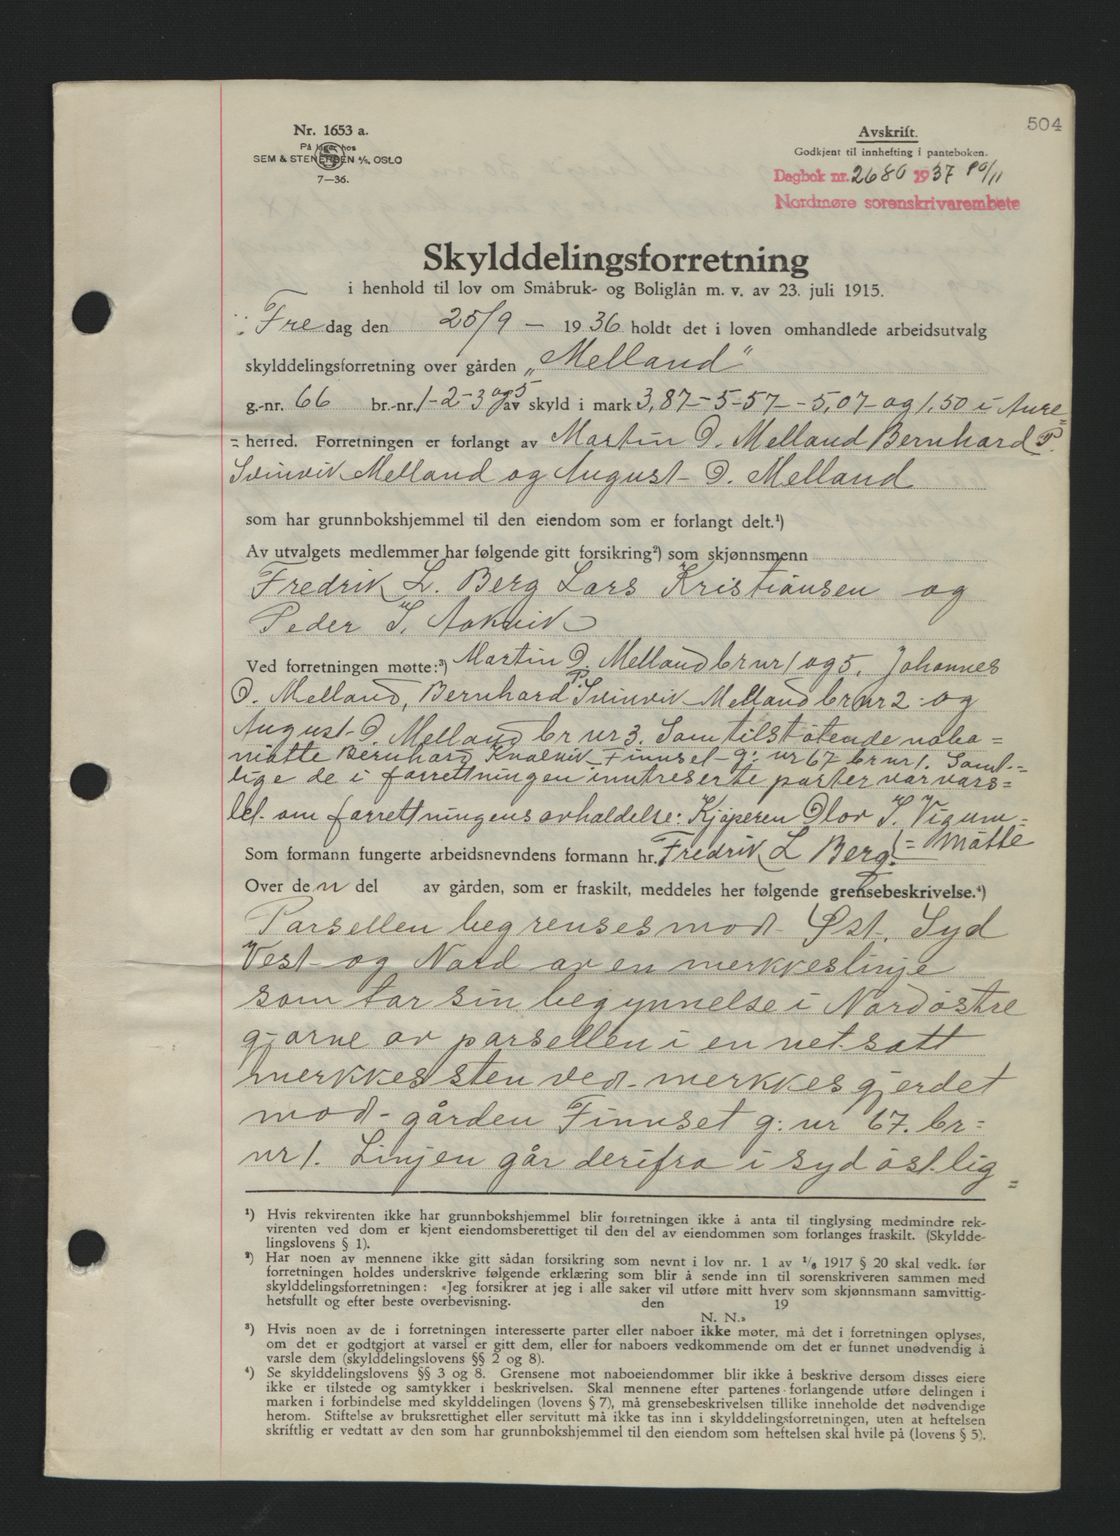 504
Nr. 1653 a.
På lager hos
SEM & STENERSEN A/S, OSLO
7—36.
Avskrift.
Godkjent til innhefting i panteboken.
Dagbok nr. 2680 1937 10/11
Nordmøre sorenskrivarembete
Skylddelingsforretning
i henhold til lov om Småbruk- og Boliglån m. v. av 23. juli 1915.
Fredag den 25/9 — 1936 holdt det i loven omhandlede arbeidsutvalg
skylddelingsforretning over gården „Melland"
g.-nr. 66 br.-nr. 1-2-3 og 5 av skyld i mark 3,87-5-57-5,07-og 1,50 i Aure=
= herred. Forretningen er forlangt av Martin O. Melland Bernhard P.
Svinvik Melland og August O. Melland
som har grunnbokshjemmel til den eiendom som er forlangt delt.¹)
Av utvalgets medlemmer har følgende gitt forsikring²) som skjønnsmenn
Fredrik L. Berg Lars Kristiansen og
Peder I. Aakvik
Ved forretningen møtte:³) Martin O. Melland br nr 1 og 5, Johannes
O. Melland, Bernhard P. Svinvik Melland br nr 2 og
August O Melland br nr 3. Som tilstøtende nabo=
møtte Bernhard Knalvik Finnset g: nr 67 br nr 1. Samt=
lige de i forrettningen inntreserte parter var vars=
let om forrettningens avholdelse: Kjøperen Olov I. Vigum=
Som formann fungerte arbeidsnevndens formann hr. Fredrik L Berg. (= møtte
Over den del av gården, som er fraskilt, meddeles her følgende grensebeskrivelse.⁴)
Parsellen begrenses mod Øst, Syd
Vest og Nord av en merkkeslinje
som tar sin begynnelse i Nordøstre
gjørne av parsellen i en netsatt
merkkessten ved merkkesgjerdet
mod gården Finnset g: nr 67. br=
nr 1. Linjen går derifra i sydøstlig=
¹) Hvis rekvirenten ikke har grunnbokshjemmel blir forretningen ikke å anta til tinglysing medmindre rek-
virenten ved dom er kjent eiendomsberettiget til den del av eiendommen som forlanges fraskilt. (Skyldde-
lingslovens § 1).
²) Har noen av mennene ikke gitt sådan forsikring som nevnt i lov nr. 1 av 1/6 1917 § 20 skal vedk. før
forretningen holdes underskrive følgende erklæring som blir å sende inn til sorenskriveren sammen med
skylddelingsforretningen: «Jeg forsikrer at jeg i alle saker vil utføre mitt hverv som skjønnsmann samvittig-
hetsfullt og efter beste overbevisning. den 19
N. N.»
³) Hvis noen av de i forretningen interesserte parter eller naboer ikke møter, må det i forretningen oplyses,
om det er godtgjort at varsel er gitt dem, eller for naboers vedkommende om det er funnet unødvendig å
varsle dem (skylddelingslovens §§ 2 og 8).
⁴) Se skylddelingslovens §§ 3 og 8. Grensene mot naboeiendommer blir ikke å beskrive dersom disses eiere
ikke er tilstede og samtykker i beskrivelsen. Skal mennene efter partenes forlangende utføre delingen i
marken i forbindelse med skylddelingen (lovens § 7), må grensebeskrivelsen tillike inneholde det nødvendige
herom. Stiftelse av bruksrettighet eller servitutt må ikke tas inn i skylddelingsforretningen, uten at heftelsen
skriftlig er vedtatt av den som har grunnbokshjemmel til den eiendom som heftelsen skal hvile på (lovens § 5).